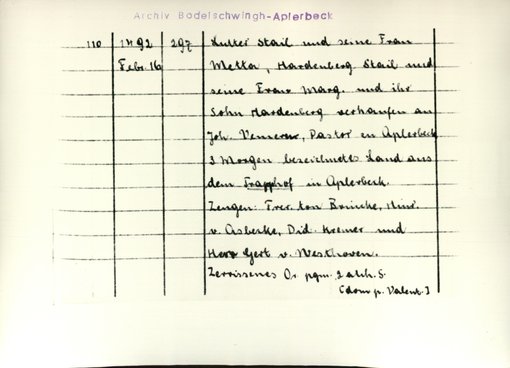 Archiv Bodelschwingh-Aplerbeck
110 1492 297 Lutter Stail und seine Frau
Febr. 16 Metta, Hardenberg Stail und
seine Frau Marg. und ihr
Sohn Hardenberg verkaufen an
Joh. Pastor in Aplerbeck
3 Morgen bezeichnetes Land aus
dem Trapphof in Aplerbeck.
Zeugen: Frer. ton Brincke, Hinr.
v. Asbecke, Did. Kremer und
Herr Gert v. Westhoven.
Zerrissenes Or. pgm. 2 abh. S.
(dom p. Valent.)